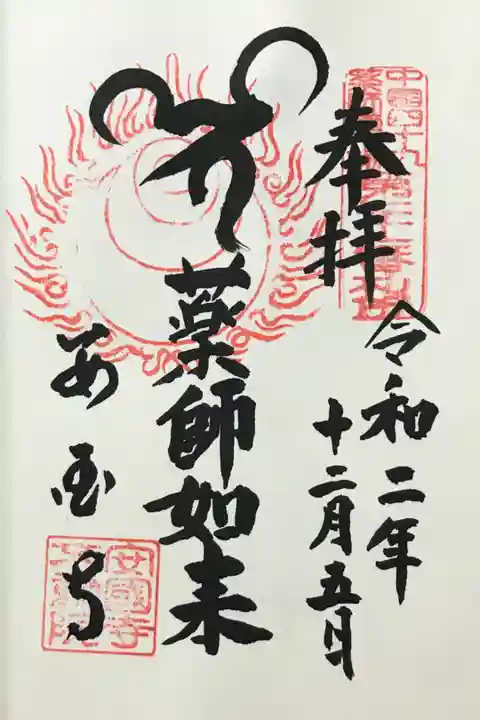 奉拝
令和二年
十二月五日
薬師如来
安国寺
安國寺